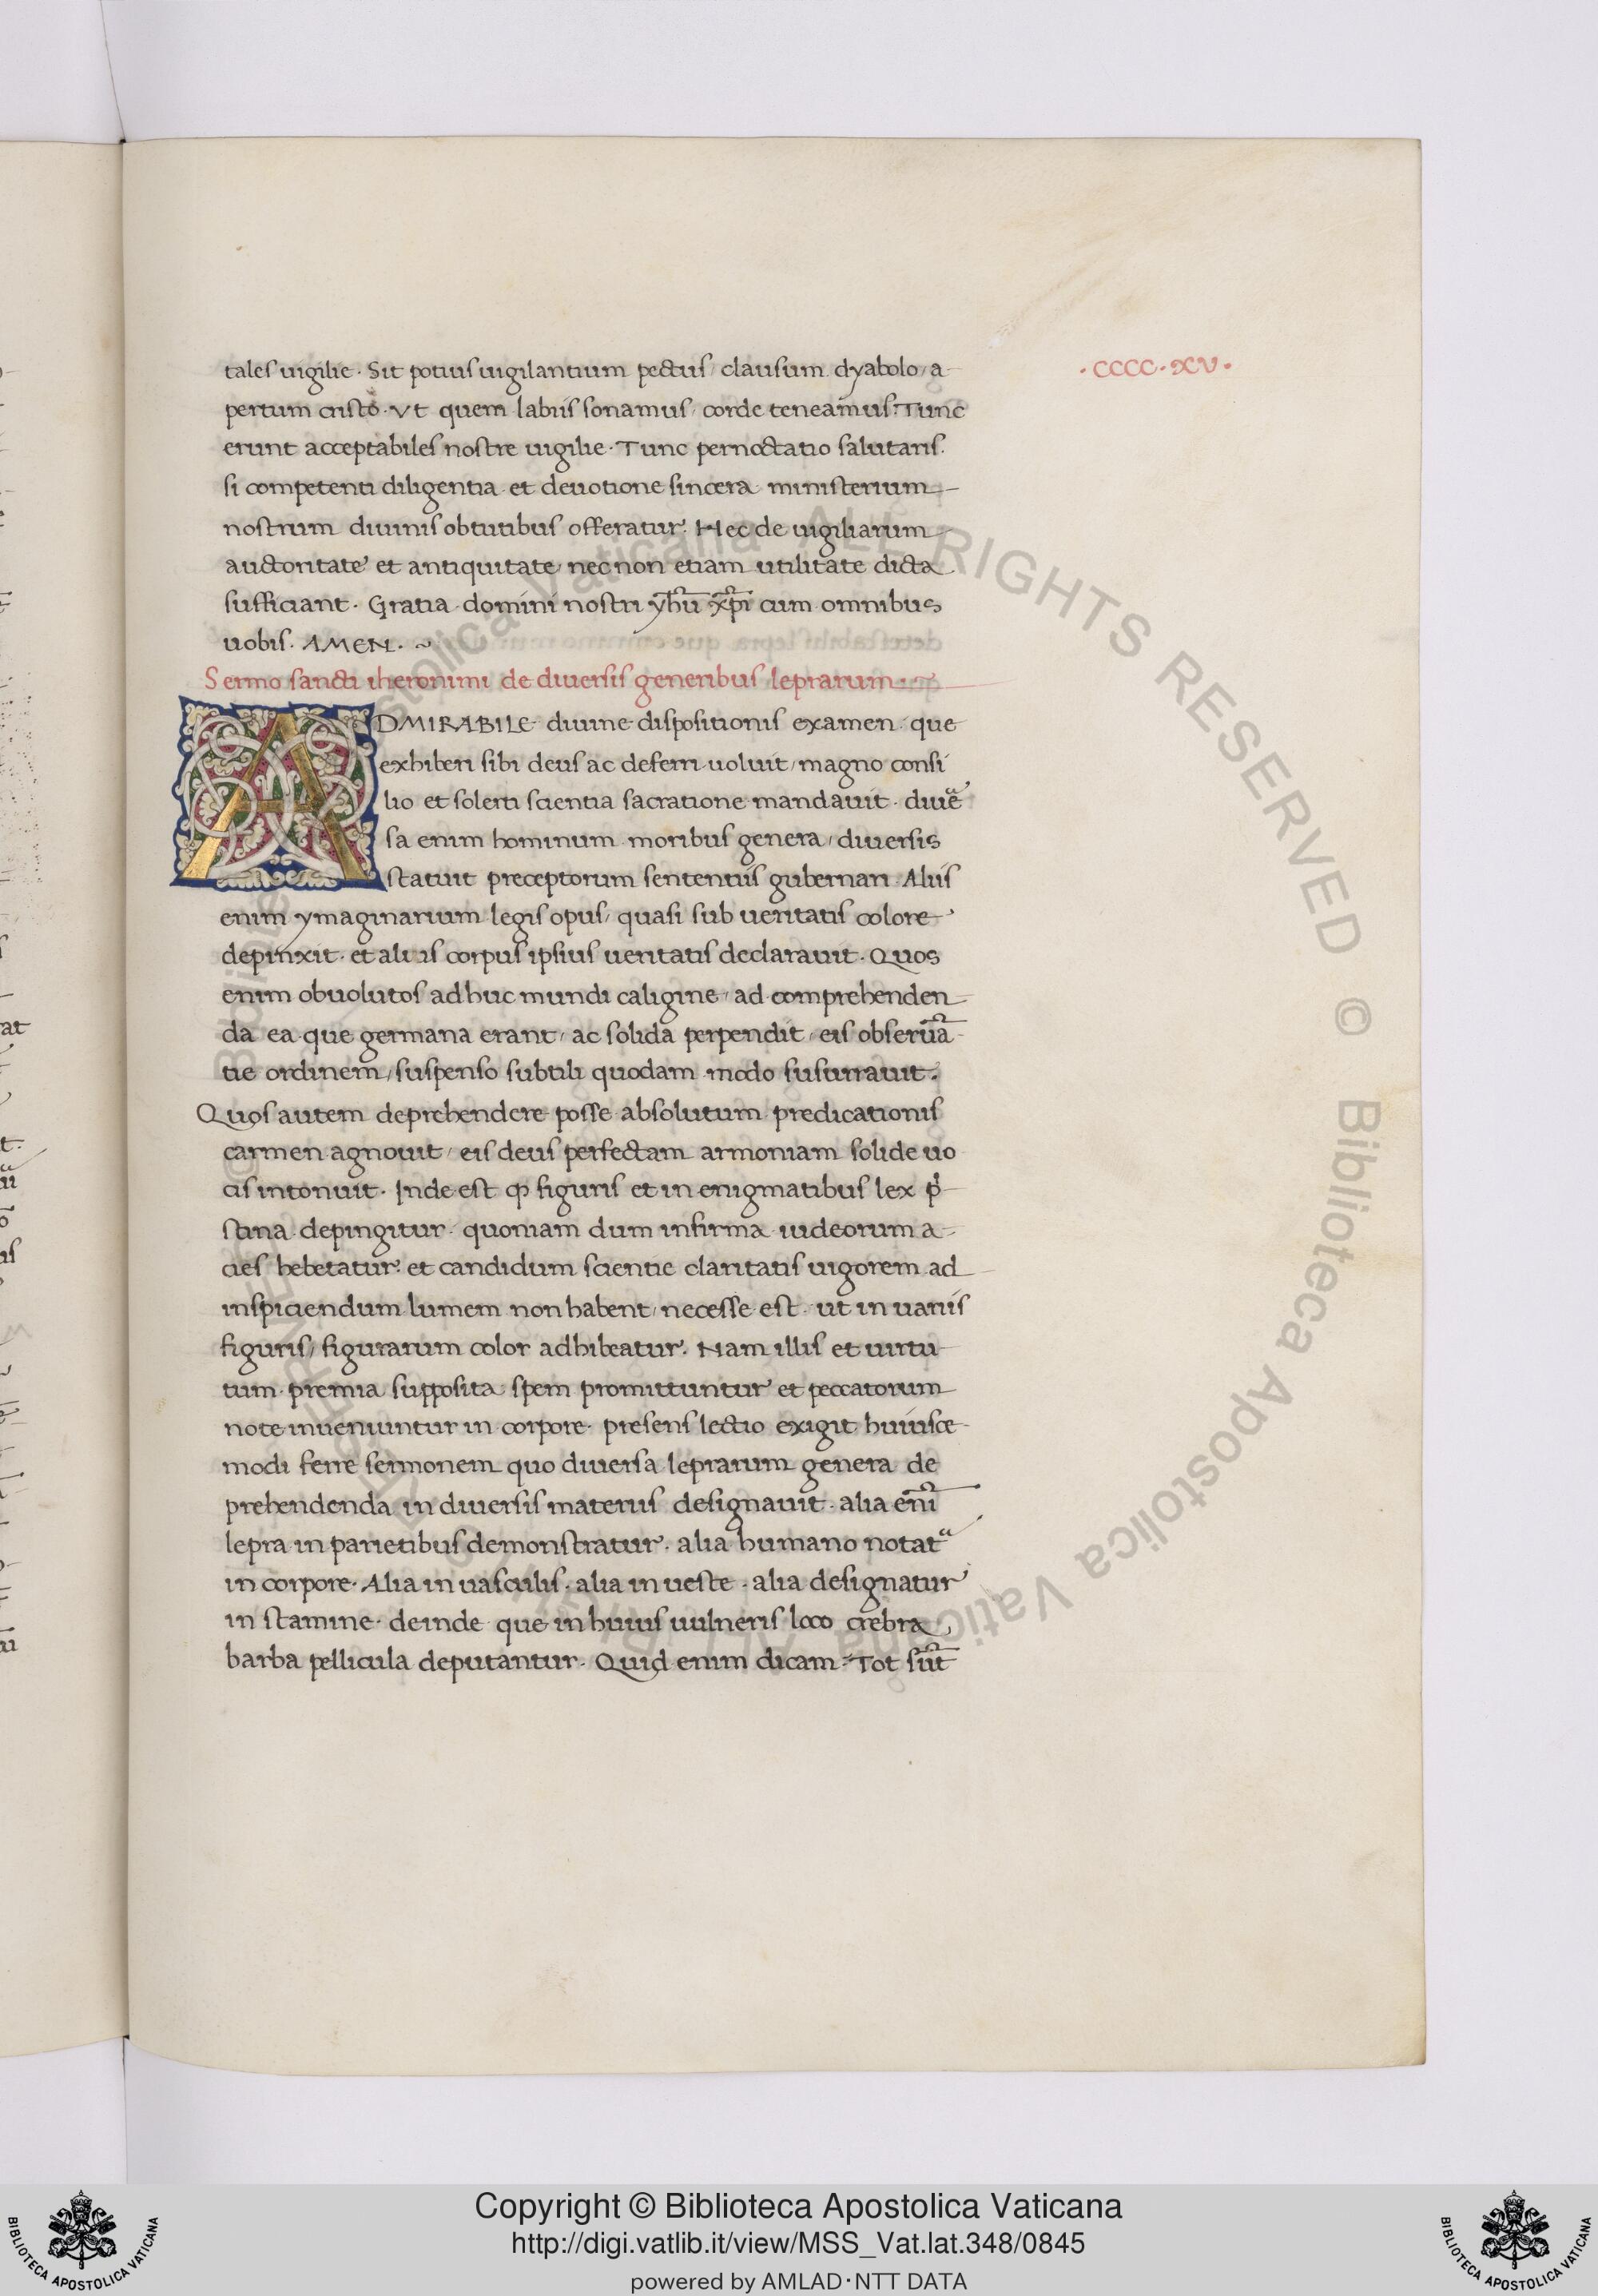 ·CCCC·XV·
tales uigilie· Sit potius uigilantium pectus / clausum dyabolo / a-
pertum cristo· Vt quem labiis sonamus / corde teneamus: Tunc
erunt acceptabiles nostre uigilie· Tunc pernoctatio salutaris.
si competenti diligentia et deuotione sincera ministerium
nostrum diuinis obtutibus offeratur. Hec de uigiliarum
auctoritate et antiquitate nec non etiam utilitate dicta
sufficiant· Gratia domini nostri yhu̅ xp̅i cum omnibus
uobis· AMEN· ~
Sermo sancti iheronimi de diuersis generibus leprarum·
ADMIRABILE diuine dispositionis examen· que
exhiberi sibi deus ac deferri uoluit / magno consi
lio et solerti scientia sacratione mandauit· diue͛
sa enim hominum moribus genera / diuersis
statuit preceptorum sententiis gubernari· Aliis
enim ymaginarium legis opus / quasi sub ueritatis colore
depinxit· et aliis corpus ipsius ueritatis declarauit· Quos
enim obuolutos adhuc mundi caligine / ad comprehenden
da ea que germana erant / ac solida perpendit / eis obserua̅
tie ordinem / suspenso subtili quodam modo susurrauit.
Quos autem deprehendere posse absolutum predicationis
carmen agnouit / eis deus perfectam armoniam solide uo
cis intonuit· Inde est ꝙ figuris et in enigmatibus lex p͛i
stina depingitur· quoniam dum infirma iudeorum a-
cies hebetatur· et candidum scientie claritatis uigorem ad
inspiciendum lumem non habent / necesse est ut in uariis
figuris / figurarum color adhibeatur. Nam illis et uirtu
tum premia supposita spem promittuntur et peccatorum
note inueniuntur in corpore· presens lectio exigit huiusce-
modi ferre sermonem quo diuersa leprarum genera de
prehendenda in diuersis materiis designauit· alia eni̅
lepra in parietibus demonstratur· alia humano notat᷑
in corpore· Alia in uasculis· alia in ueste· alia designatur
in stamine· deinde que in huius uulneris loco crebra
barba pellicula deputantur· Quid enim dicam? Tot su̅t
Copyright © Biblioteca Apostolica Vaticana
http://digi.vatlib.it/view/MSS_Vat.lat.348/0845
powered by AMLAD·NTT DATA
BIBLIOTECA APOSTOLICA VATICANA
BIBLIOTECA APOSTOLICA VATICANA